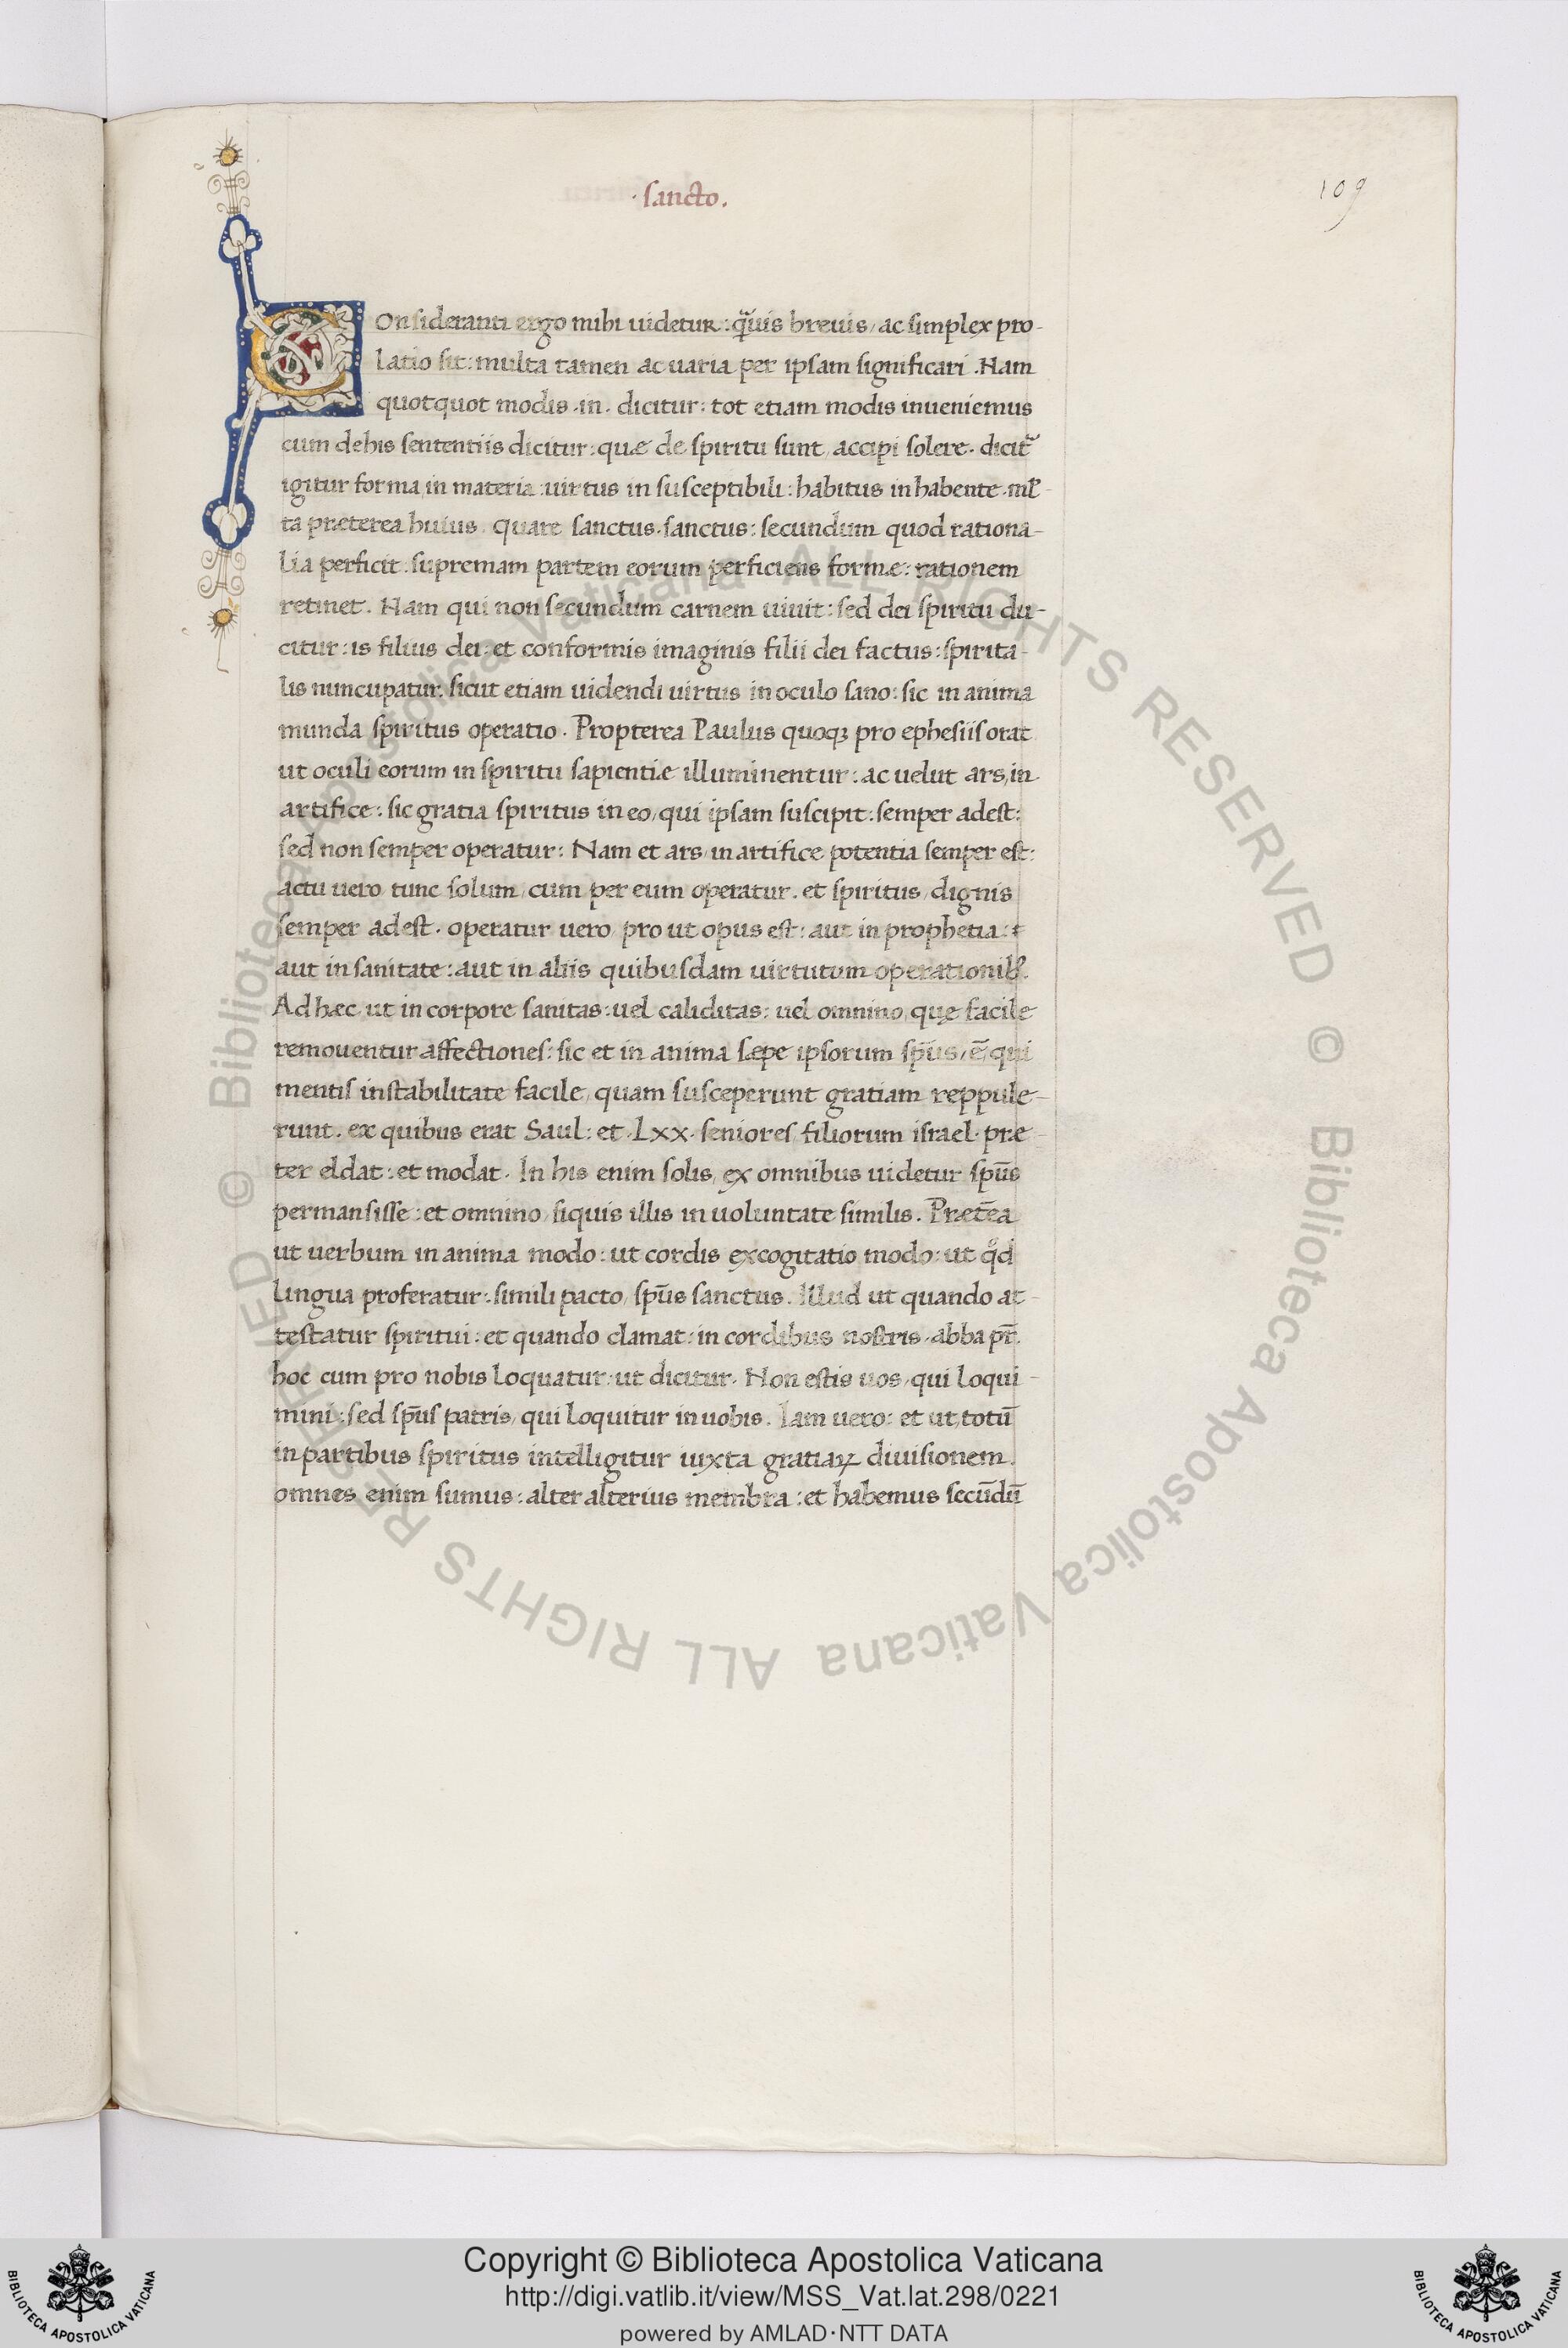 · sancto .
109
COnsideranti ergo mihi uidetur : q̃uis breuis / ac simplex pro-
latio sit : multa tamen ac uaria per ipsam significari . Nam
quotquot modis . in . dicitur : tot etiam modis inueniemus
cum de his sententiis dicitur : quæ de spiritu sunt accipi solere . dicit᷑
igitur forma in materia : uirtus in susceptibili : habitus in habente . ml̃-
ta præterea huius . quare sanctus . sanctus : secundum quod rationa-
lia perficit . supremam partem eorum perficiens formæ : rationem
retinet . Nam qui non secundum carnem uiuit : sed dei spiritu du-
citur : is filius dei : et conformis imaginis filii dei factus : spirita-
lis nuncupatur . sicut etiam uidendi uirtus in oculo sano : sic in anima
munda spiritus operatio . Propterea Paulus quoqꝫ pro ephesiis orat
ut oculi eorum in spiritu sapientiæ illuminentur : ac uelut ars / in
artifice : sic gratia spiritus in eo / qui ipsam suscipit : semper adest :
sed non semper operatur : Nam et ars / in artifice potentia semper est :
actu uero tunc solum / cum per eum operatur . et spiritus / dignis
semper adest . operatur uero / pro ut opus est : aut in prophetia :
aut in sanitate : aut in aliis quibusdam uirtutum operationib; .
Ad hæc ut in corpore sanitas : uel caliditas : uel omnino que facile
remouentur affectiones : sic et in anima sæpe ipsorum sp̃us / ẽ / qui
mentis instabilitate facile / quam susceperunt gratiam reppule-
runt . ex quibus erat Saul : et . Lxx . seniores filiorum israel . præ-
ter eldat : et modat . In his enim solis / ex omnibus uidetur sp̃us
permansisse : et omnino / siquis illis in uoluntate similis . Præt̃ea
ut uerbum in anima modo : ut cordis excogitatio modo : ut qͦd
lingua proferatur : simili pacto / sp̃us sanctus . Illud ut quando at-
testatur spiritui : et quando clamat : in cordibus nostris . abba pr̃ .
hoc cum pro nobis loquatur : ut dicitur . Non estis uos / qui loqui-
mini : sed sp̃us patris / qui loquitur in uobis . Iam uero : et ut / totũ
in partibus spiritus intelligitur iuxta gratiaꝝ diuisionem .
omnes enim sumus : alter alterius membra : et habemus secũdũ
© Biblioteca Apostolica Vaticana ALL RIGHTS RESERVED © Biblioteca Apostolica Vaticana ALL RIGHTS RESERVED
Copyright © Biblioteca Apostolica Vaticana
http://digi.vatlib.it/view/MSS_Vat.lat.298/0221
powered by AMLAD·NTT DATA
BIBLIOTECA APOSTOLICA VATICANA
BIBLIOTECA APOSTOLICA VATICANA